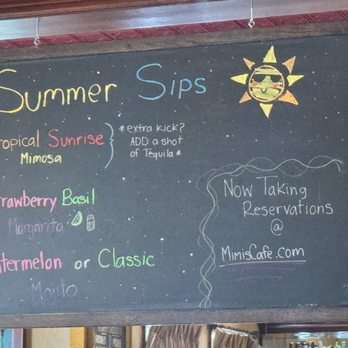 Summer Sips
ropical Sunrise
Mimosa
*extra kick?
ADD a shot
of Tequila*
rawberry Basil
Margarita
termelon or Classic
Mojito
Now Taking
Reservations
@
MimisCafe.com